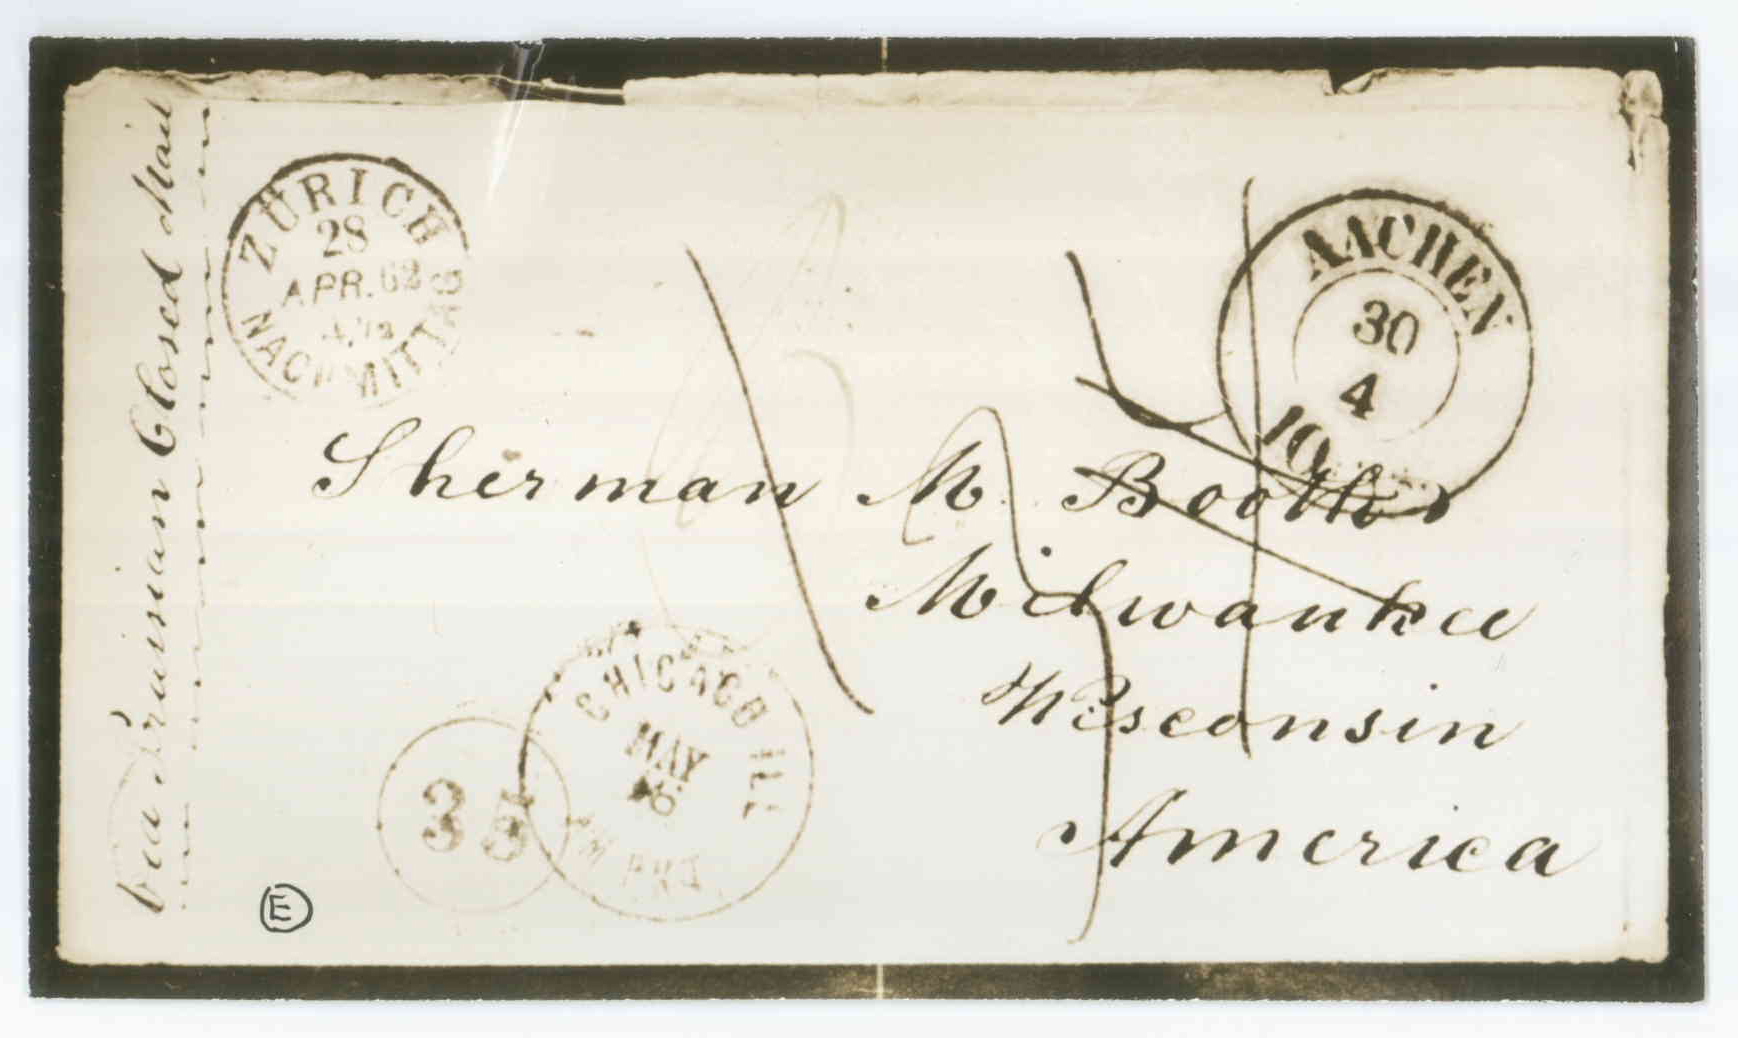 via Prussian Closed Mail
ZÜRICH
28
APR. 62
NACHMITTAG
AACHEN
30
4
10
Sherman M. Booth
Milwaukee
Wisconsin
America
CHICAGO ILL
MAY
AM. PKT.
35
E